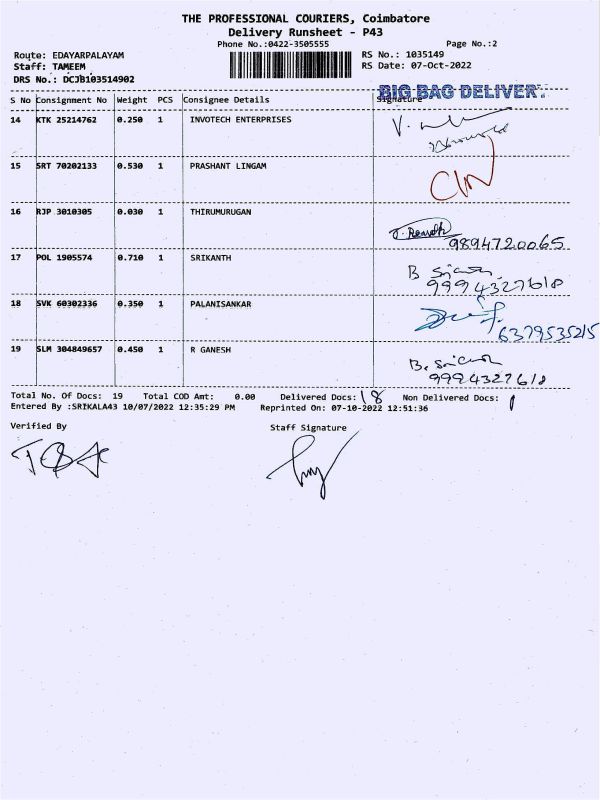 THE PROFESSIONAL COURIERS, Coimbatore
Delivery Runsheet - P43
Phone No.:0422-3505555 Page No.:2
Route: EDAYARPALAYAM RS No.: 1035149
Staff: TAMEEM RS Date: 07-Oct-2022
DRS No.: DCJB103514902
BIG BAG DELIVER
S No Consignment No Weight PCS Consignee Details Signature
14 KTK 25214762 0.250 1 INVOTECH ENTERPRISES
15 SRT 70202133 0.530 1 PRASHANT LINGAM
16 RJP 3010305 0.030 1 THIRUMURUGAN
9894720065
17 POL 1905574 0.710 1 SRIKANTH
9994327618
18 SVK 60302336 0.350 1 PALANISANKAR
6379535215
19 SLM 304849657 0.450 1 R GANESH
9994327618
Total No. Of Docs: 19 Total COD Amt: 0.00 Delivered Docs: 18 Non Delivered Docs: 1
Entered By :SRIKALA43 10/07/2022 12:35:29 PM Reprinted On: 07-10-2022 12:51:36
Verified By Staff Signature